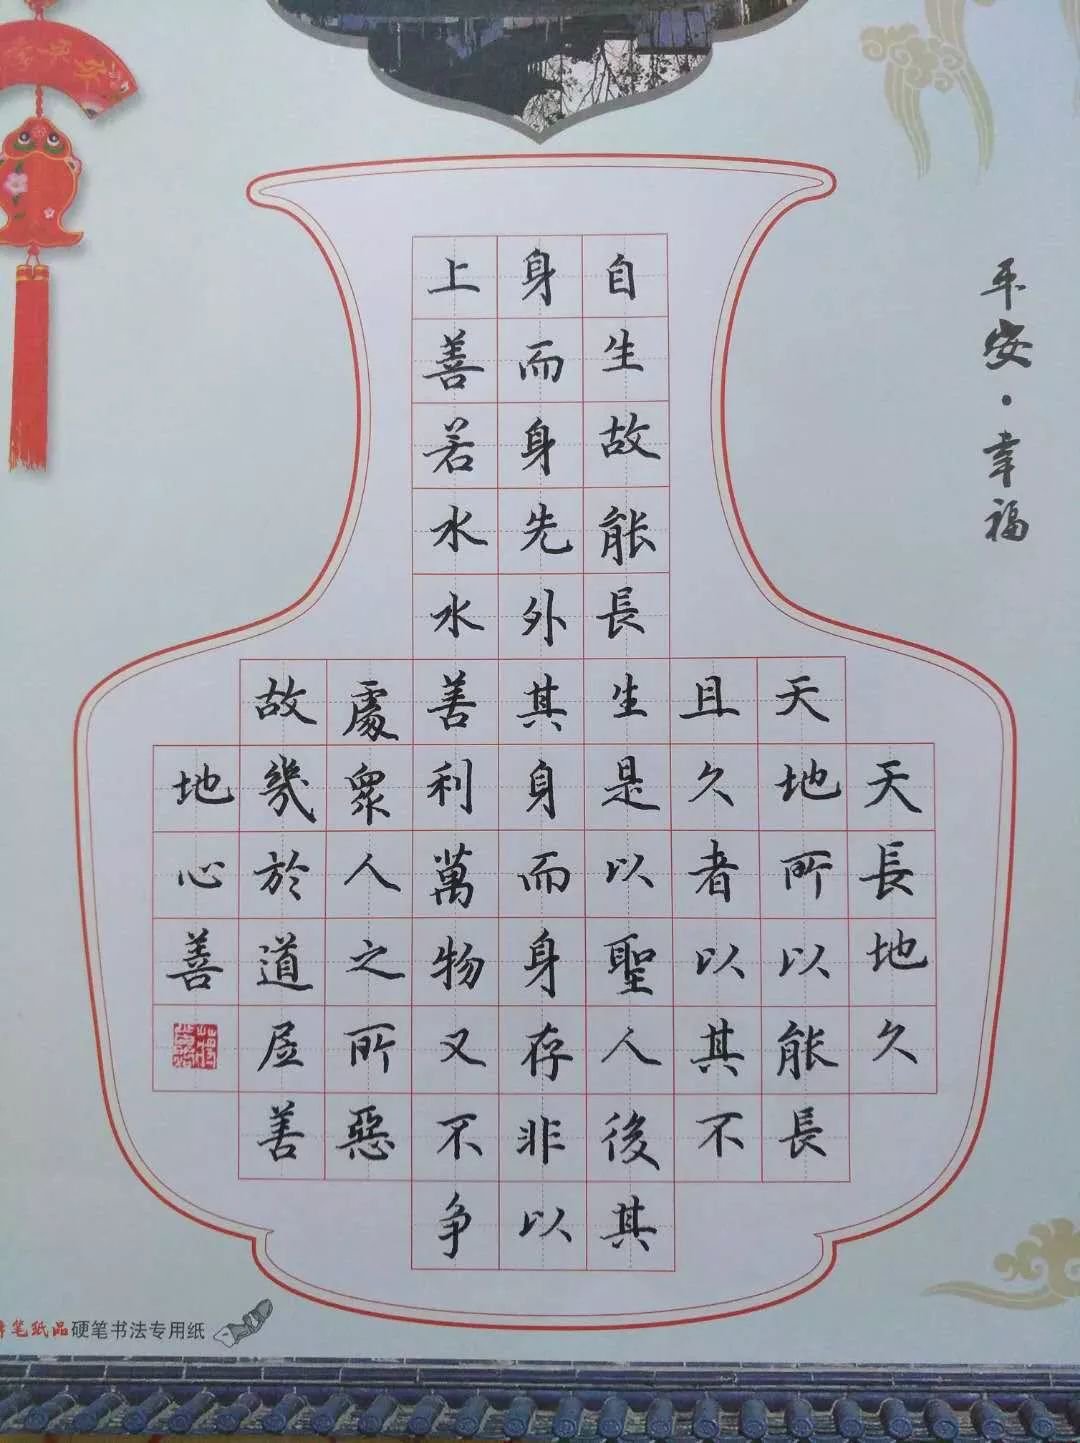 天長地久
天地所以能長
且久者以其不
自生故能長生是以聖人後其
身而身先外其身而身存非以
上善若水水善利萬物又不争
處衆人之所惡
故幾於道居善
地心善
平安·幸福
笔纸品硬笔书法专用纸